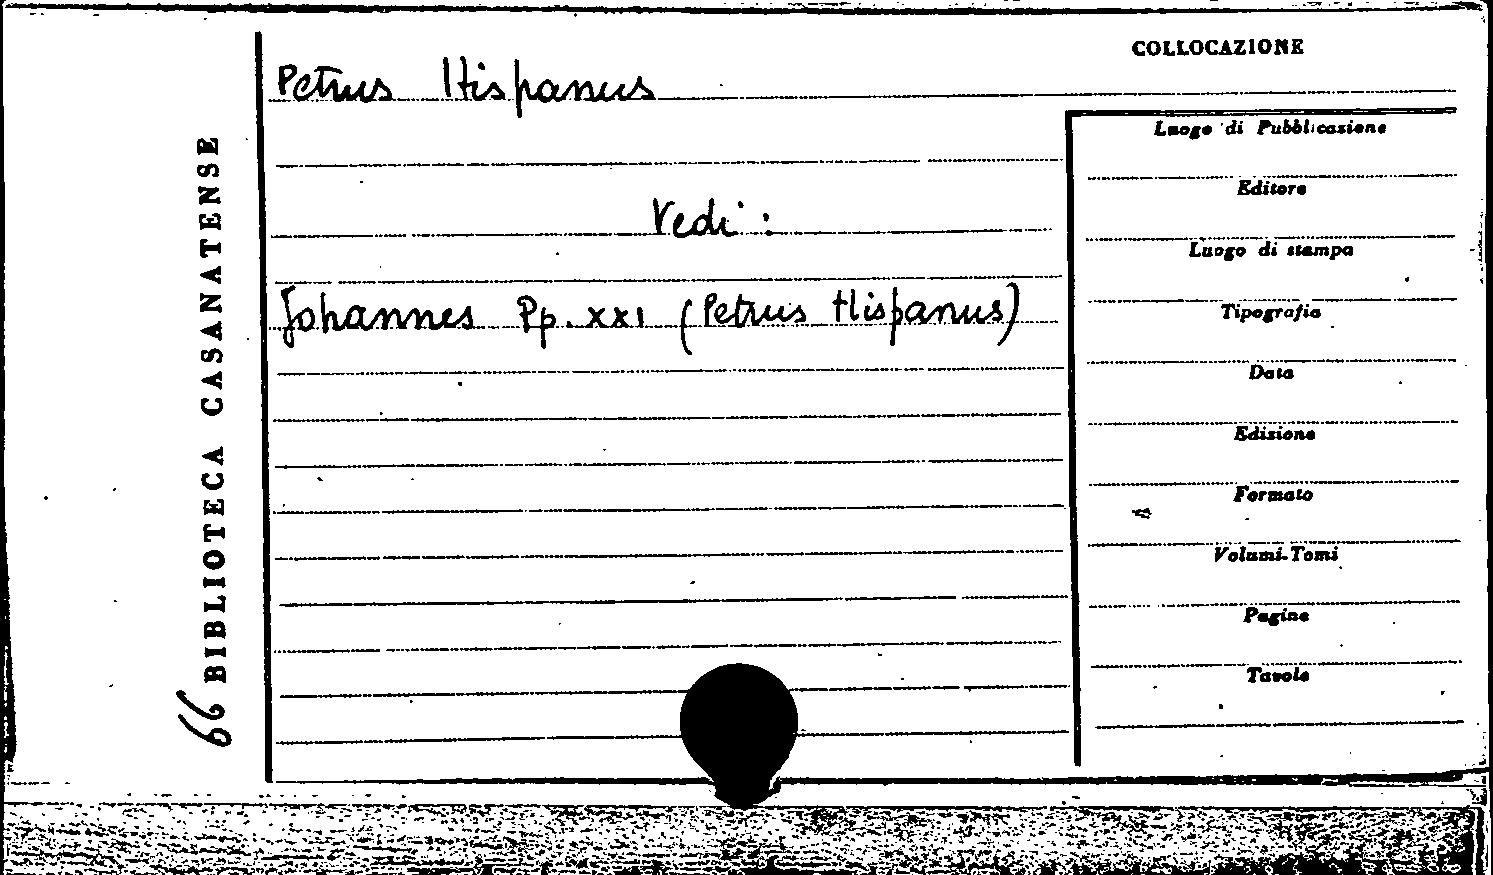 COLLOCAZIONE
Petrus Hispanus
Vedi :
Johannes Pp. XXI (Petrus Hispanus)
Luogo di Pubblicazione
Editore
Luogo di stampa
Tipografia
Data
Edizione
Formato
Volumi-Tomi
Pagine
Tavole
66 BIBLIOTECA CASANATENSE